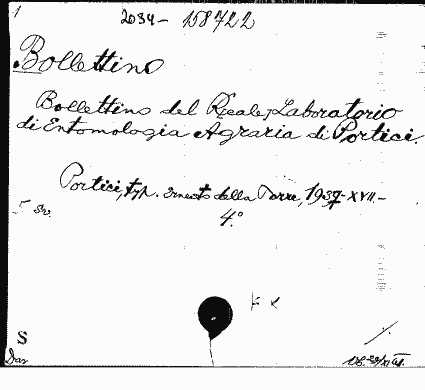 1
2034 - 158722
Bollettino
Bollettino del R[eale] Laboratorio
di Entomologia Agraria di Portici.
Portici, typ. Ernesto della Torre, 1937-XVII.-
4.º
S
Dar